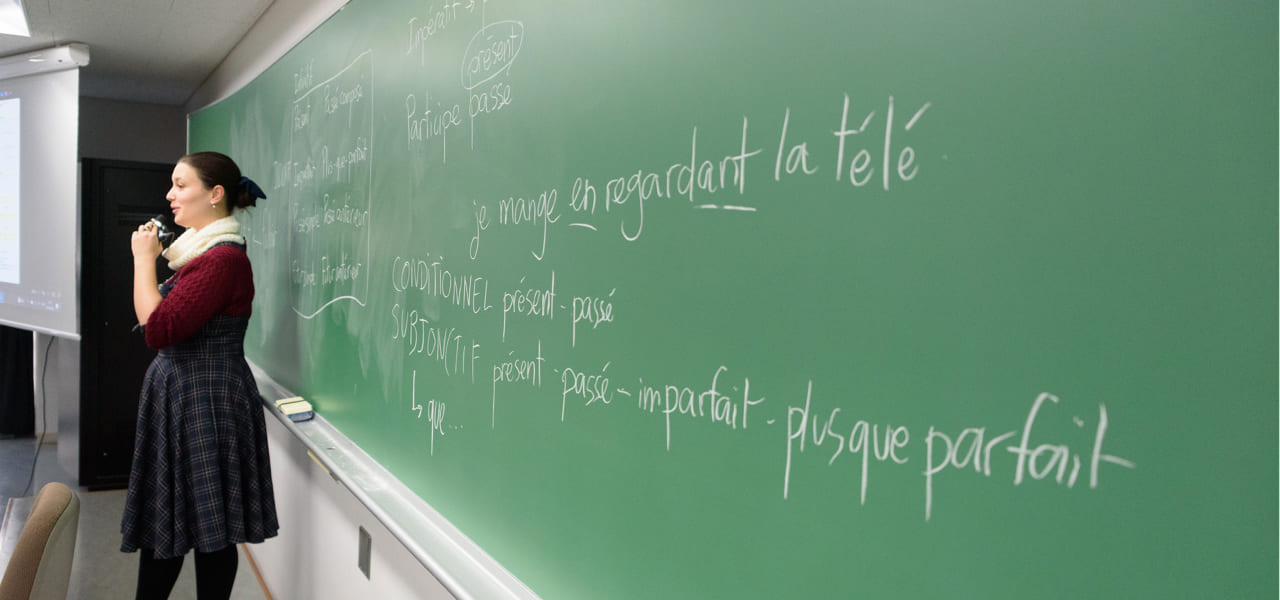 Présent Passé composé
Plus-que-parfait
Passé antérieur
Futur antérieur
Impératif →
présent
Participe passé
je mange en regardant la télé
CONDITIONNEL présent - passé
SUBJONCTIF présent - passé - imparfait - plus que parfait
↳ que...